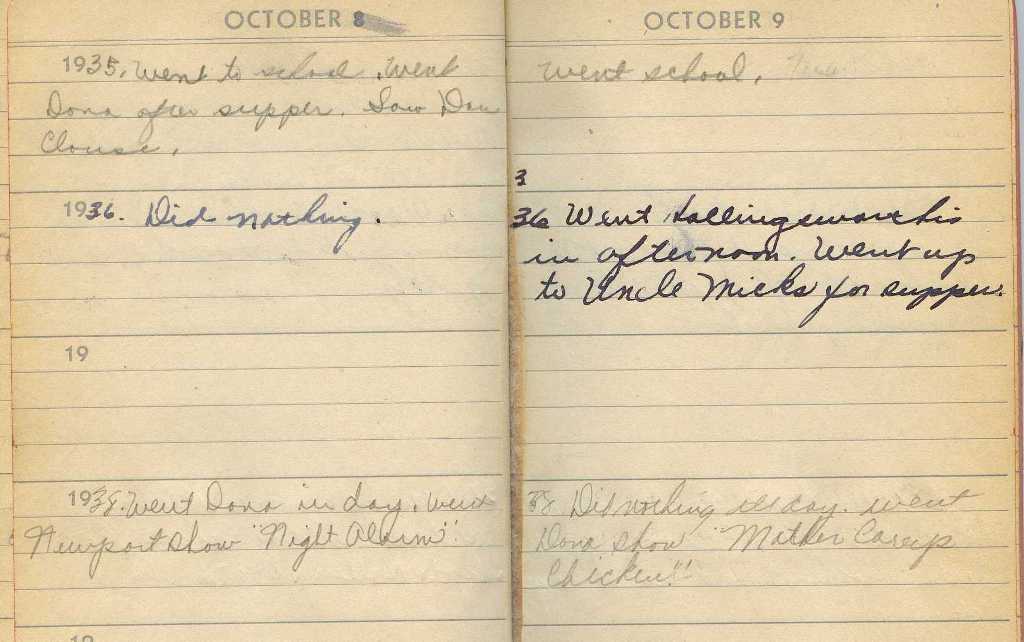 OCTOBER 8
1935. Went to school. Went
Dona after supper. Saw Don
Clouse.
1936. Did nothing.
19
1938. Went Dona in day. Went
Newport show "Night Alarm"
19
OCTOBER 9
Went school.
3
36 Went Hollingsworths
in afternoon. Went up
to Uncle Micks for supper.
38. Did nothing all day. Went
Dona show "Mother Careys
Chicken"